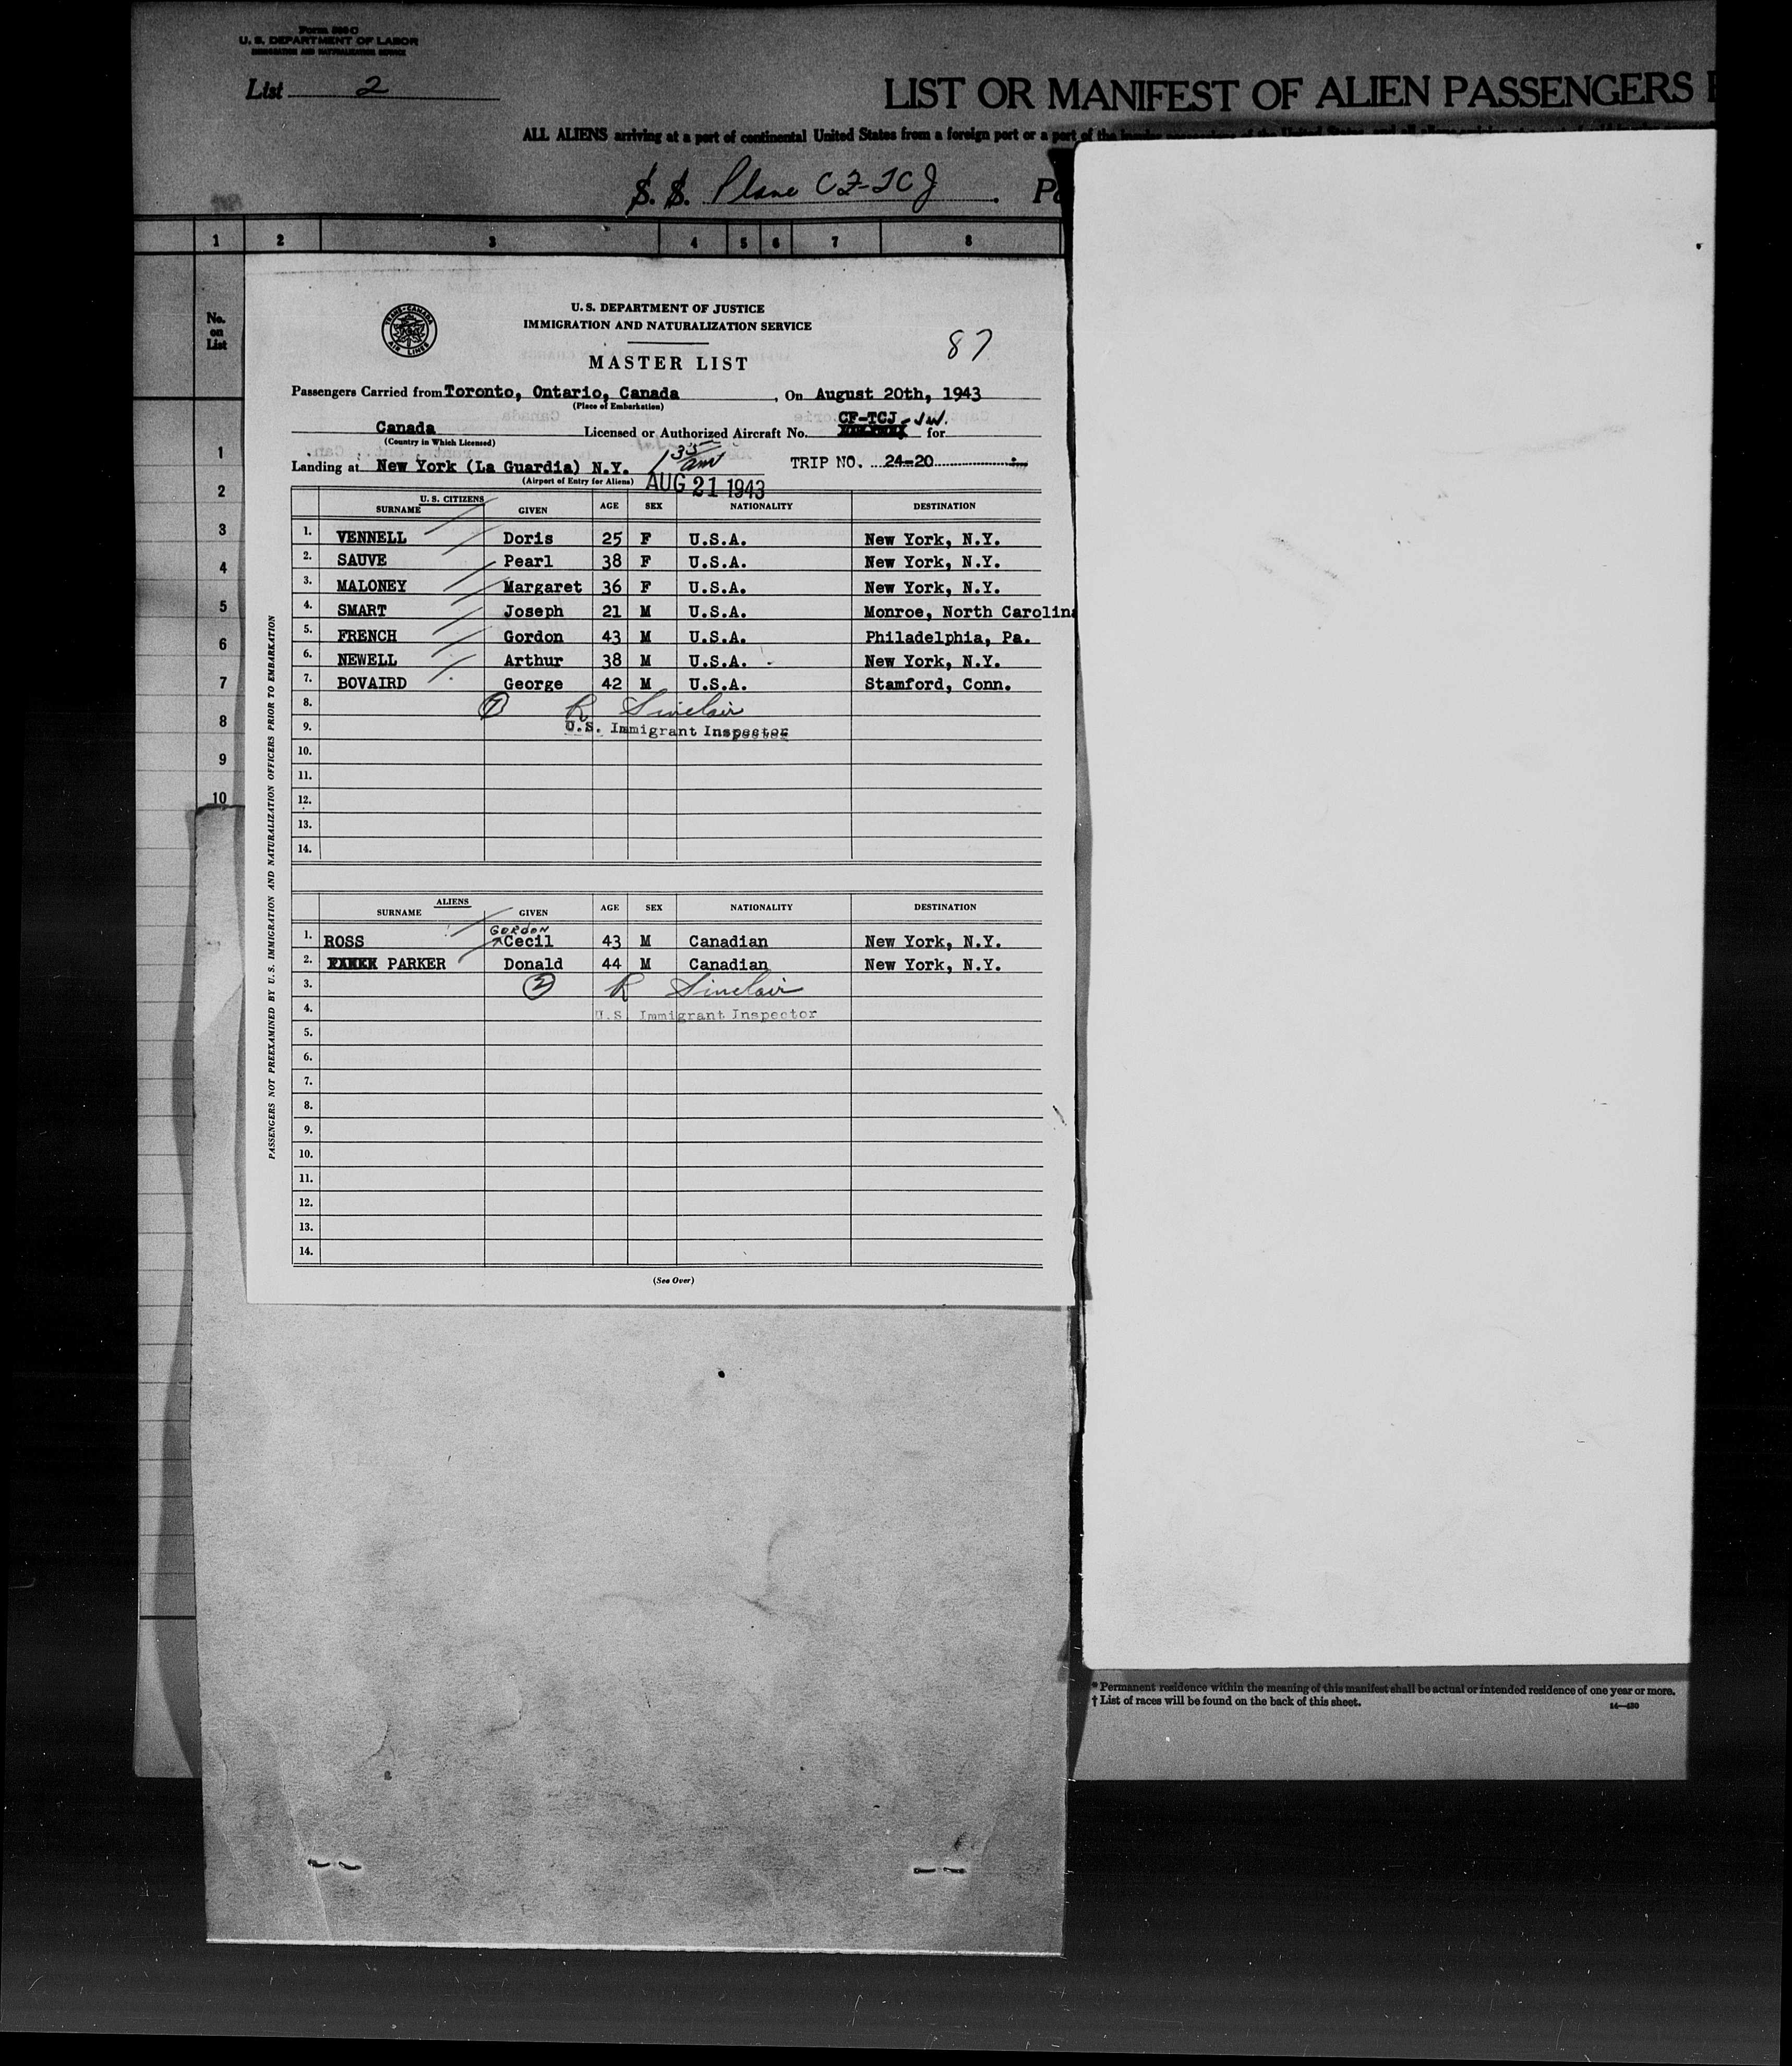 Form 500 C
U. S. DEPARTMENT OF LABOR
IMMIGRATION AND NATURALIZATION SERVICE
List 2
LIST OR MANIFEST OF ALIEN PASSENGERS
ALL ALIENS arriving at a port of continental United States from a foreign port or a port of the insular possessions of the United States, and all aliens
S. S. Plane CF-TCJ
1 2 3 4 5 6 7 8
No. on List
1
2
3
4
5
6
7
8
9
10
TRANS-CANADA AIR LINES
U. S. DEPARTMENT OF JUSTICE
IMMIGRATION AND NATURALIZATION SERVICE
87
MASTER LIST
Passengers Carried from Toronto, Ontario, Canada, On August 20th, 1943
(Place of Embarkation)
CF-TCJ - JW.
Canada Licensed or Authorized Aircraft No. for
(Country in Which Licensed)
135 am
Landing at New York (La Guardia) N.Y. TRIP NO. 24-20
(Airport of Entry for Aliens) AUG 21 1943
U. S. CITIZENS
SURNAME GIVEN AGE SEX NATIONALITY DESTINATION
1. VENNELL Doris 25 F U.S.A. New York, N.Y.
2. SAUVE Pearl 38 F U.S.A. New York, N.Y.
3. MALONEY Margaret 36 F U.S.A. New York, N.Y.
4. SMART Joseph 21 M U.S.A. Monroe, North Carolina
5. FRENCH Gordon 43 M U.S.A. Philadelphia, Pa.
6. NEWELL Arthur 38 M U.S.A. New York, N.Y.
7. BOVAIRD George 42 M U.S.A. Stamford, Conn.
8. 7 R Sinclair
9. U.S. Immigrant Inspector
10.
11.
12.
13.
14.
ALIENS
SURNAME GIVEN AGE SEX NATIONALITY DESTINATION
GORDON
1. ROSS Cecil 43 M Canadian New York, N.Y.
2. PARKER Donald 44 M Canadian New York, N.Y.
3. 2 R Sinclair
4. U.S. Immigrant Inspector
5.
6.
7.
8.
9.
10.
11.
12.
13.
14.
(See Over)
PASSENGERS NOT PREEXAMINED BY U. S. IMMIGRATION AND NATURALIZATION OFFICERS PRIOR TO EMBARKATION
* Permanent residence within the meaning of this manifest shall be actual or intended residence of one year or more.
† List of races will be found on the back of this sheet.
14—430